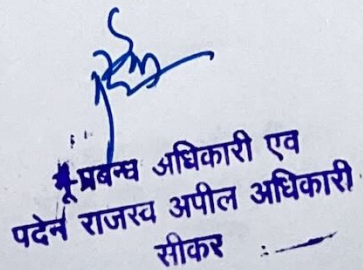 भू-प्रबन्ध अधिकारी एव
पदेन राजस्व अपील अधिकारी
सीकर :—